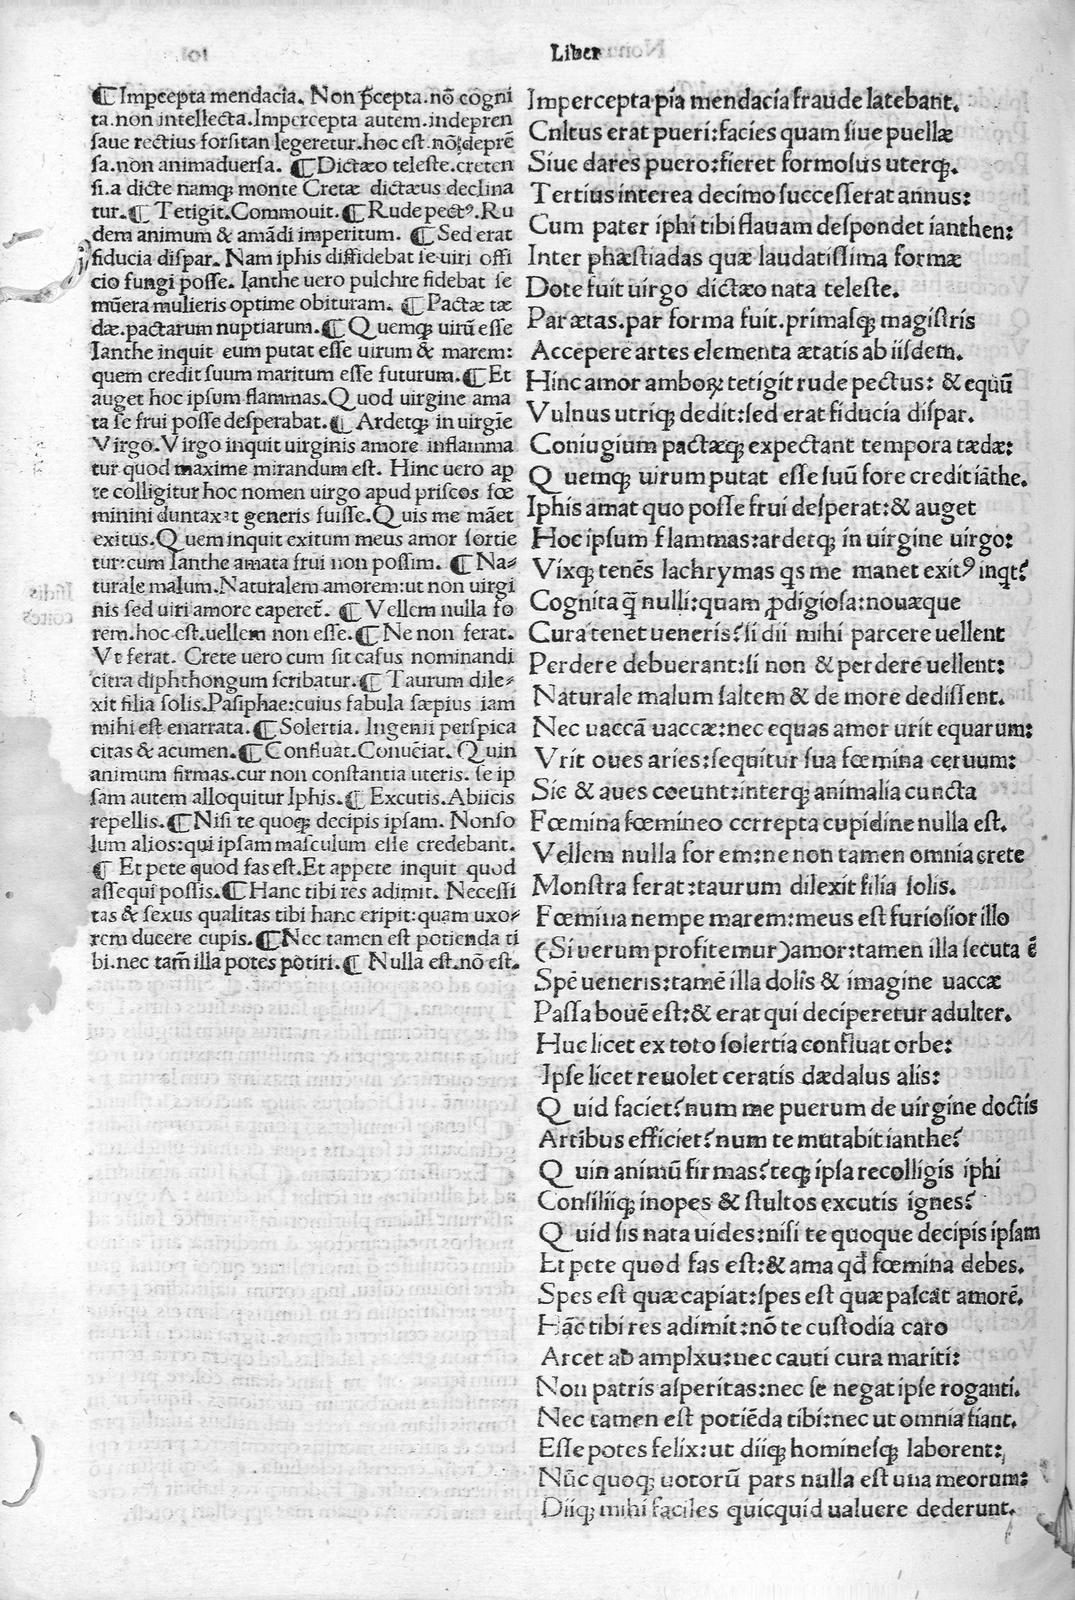 Liber
¶ Impcepta mendacia. Non p̃cepta. nõ cogni
ta. non intellecta. Impercepta autem. indepren
saue rectius forsitan legeretur. hoc est. nõ depre
sa. non animaduersa. ¶ Dictæo teleste. creten
si. a dicte namqꝫ monte Cretæ dictæus declina
tur. ¶ Tetigit. Commouit. ¶ Rude pectꝰ. Ru
dem animum & amãdi imperitum. ¶ Sed erat
fiducia dispar. Nam iphis diffidebat se uiri offi
cio fungi posse. Ianthe uero pulchre fidebat se
mũera mulieris optime obituram. ¶ Pactæ tæ
dæ. pactarum nuptiarum. ¶ Quemqꝫ uirũ esse
Ianthe inquit eum putat esse uirum & marem:
quem credit suum maritum esse futurum. ¶ Et
auget hoc ipsum flammas. Quod uirgine ama
ta se frui posse desperabat. ¶ Ardetqꝫ in uirgĩe
Virgo. Virgo inquit uirginis amore inflamma
tur quod maxime mirandum est. Hinc uero ap
te colligitur hoc nomen uirgo apud priscos fœ
minini duntaxat generis fuisse. Quis me mãet
exitus. Quem inquit exitum meus amor sortie
tur: cum Ianthe amata frui non possim. ¶ Na-
turale malum. Naturalem amorem: ut non uirgi
nis sed uiri amore caperer̃. ¶ Vellem nulla fo
rem. hoc est. uellem non esse. ¶ Ne non ferat.
Vt ferat. Crete uero cum sit casus nominandi
citra diphthongum scribatur. ¶ Taurum dile-
xit filia solis. Pasiphae: cuius fabula sæpius iam
mihi est enarrata. ¶ Solertia. Ingenii perspica
citas & acumen. ¶ Confluat. Conuẽiat. Quin
animum firmas. cur non constantia uteris. se ip
sam autem alloquitur Iphis. ¶ Excutis. Abiicis
repellis. ¶ Nisi te quoqꝫ decipis ipsam. Nonso
lum alios: qui ipsam masculum esse credebant.
¶ Et pete quod fas est. Et appete inquit quod
assequi possis. ¶ Hanc tibi res adimit. Necessi
tas & sexus qualitas tibi hanc eripit: quam uxo-
rem ducere cupis. ¶ Nec tamen est potienda ti
bi. nec tam̃ illa potes potiri. ¶ Nulla est. nõ est.
Impercepta pia mendacia fraude latebant.
Cultus erat pueri: facies quam siue puellæ
Siue dares puero: fieret formosus uterqꝫ.
Tertius interea decimo successerat annus:
Cum pater iphi tibi flauam despondet ianthen:
Inter phæstiadas quæ laudatissima formæ
Dote fuit uirgo dictæo nata teleste.
Par ætas. par forma fuit. primasqꝫ magistris
Accepere artes elementa ætatis ab iisdem.
Hinc amor amboꝝ tetigit rude pectus: & equũ
Vulnus utriqꝫ dedit: sed erat fiducia dispar.
Coniugium pactæqꝫ expectant tempora tædæ:
Quemqꝫ uirum putat esse suũ fore credit iãthe.
Iphis amat quo posse frui desperat: & auget
Hoc ipsum flammas: ardetqꝫ in uirgine uirgo:
Vixqꝫ tenẽs lachrymas qs me manet exitꝰ inqt?
Cognita q̃ nulli: quam ꝓdigiosa: nouæque
Cura tenet ueneris? si dii mihi parcere uellent
Perdere debuerant: si non & perdere uellent:
Naturale malum saltem & de more dedissent.
Nec uaccã uaccæ: nec equas amor urit equarum:
Vrit oues aries: sequitur sua fœmina ceruum:
Sic & aues coeunt: interqꝫ animalia cuncta
Fœmina fœmineo correpta cupidine nulla est.
Vellem nulla forem: ne non tamen omnia crete
Monstra ferat: taurum dilexit filia solis.
Fœmina nempe marem: meus est furiosior illo
(Si uerum profitemur) amor: tamen illa secuta ẽ
Spẽ ueneris: tamẽ illa dolis & imagine uaccæ
Passa bouẽ est: & erat qui deciperetur adulter.
Huc licet ex toto solertia confluat orbe:
Ipse licet reuolet ceratis dædalus alis:
Quid faciet? num me puerum de uirgine doctis
Artibus efficiet? num te mutabit ianthe?
Quin animũ firmas? teqꝫ ipsa recolligis iphi
Consiliiqꝫ inopes & stultos excutis ignes?
Quid sis nata uides: nisi te quoque decipis ipsam
Et pete quod fas est: & ama qd̃ fœmina debes.
Spes est quæ capiat: spes est quæ pascat amorẽ.
Hãc tibi res adimit: nõ te custodia caro
Arcet ab amplxu: nec cauti cura mariti:
Non patris asperitas: nec se negat ipse roganti.
Nec tamen est potiẽda tibi: nec ut omnia fiant.
Esse potes felix: ut diiqꝫ hominesqꝫ laborent:
Nũc quoqꝫ uotorũ pars nulla est una meorum:
Diiqꝫ mihi faciles quicquid ualuere dederunt.